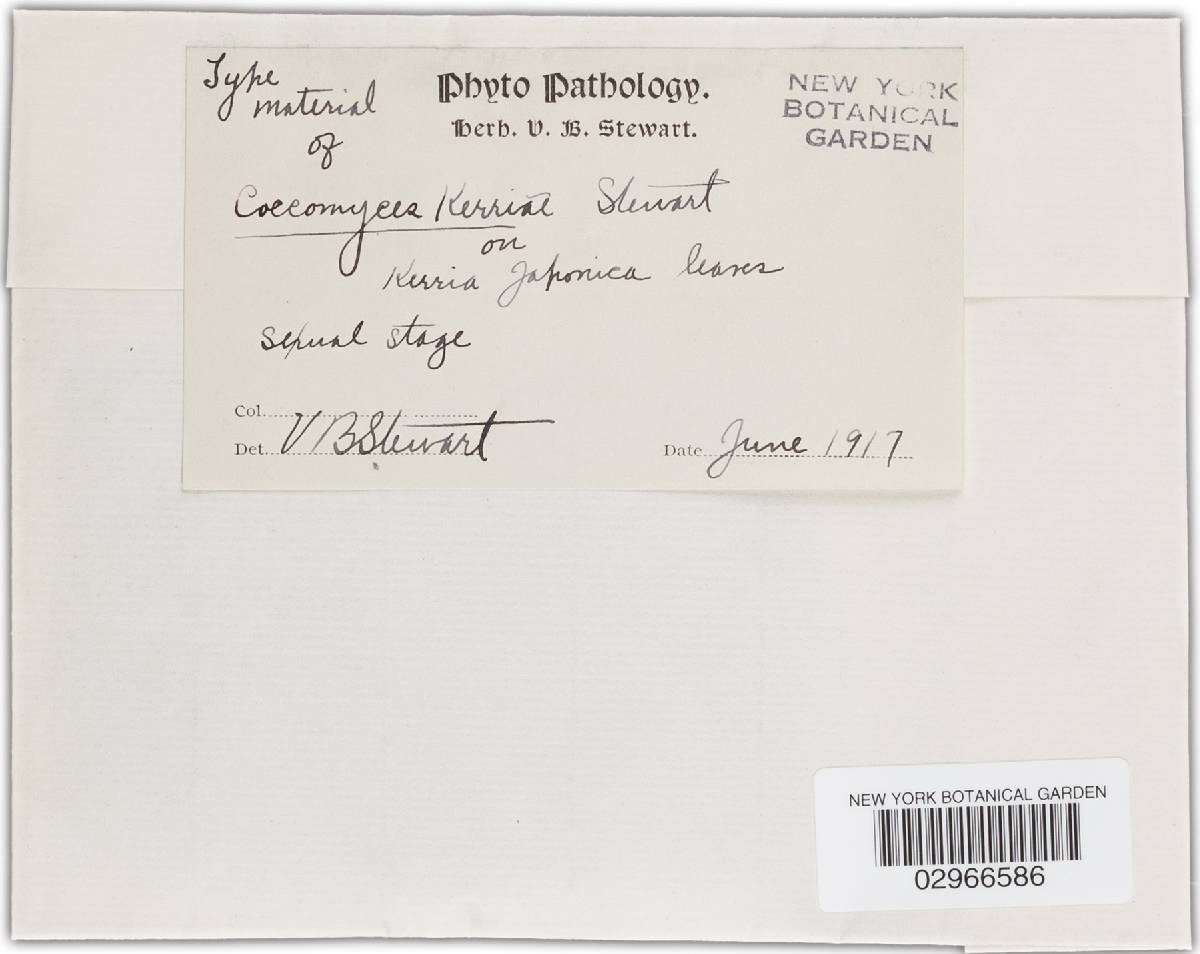 Type
material
of
Phyto Pathology.
Herb. V. B. Stewart.
NEW YORK
BOTANICAL
GARDEN
Coccomyces Kerriae Stewart
on
Kerria Japonica leaves
sexual stage
Col.
Det. V B Stewart
Date June 1917
NEW YORK BOTANICAL GARDEN
02966586